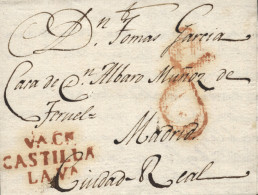 Dn. Tomas Garcia
Casa de Dn. Albaro Muñoz de
Teruel
8
Madrid
VA.CN
CASTILLA
LAVA
Ciudad Real